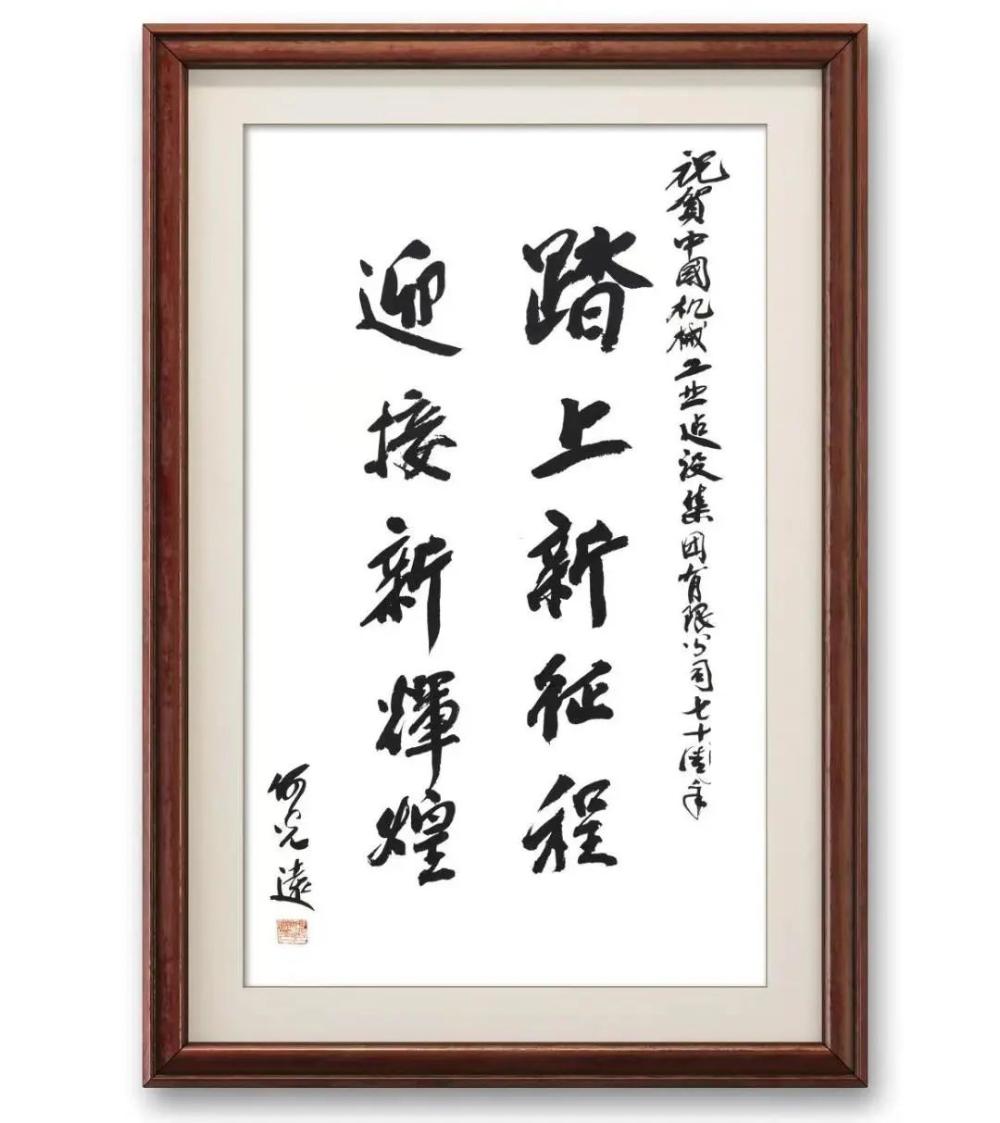 祝賀中國机械工业建设集团有限公司七十周年
踏上新征程
迎接新輝煌
何光遠